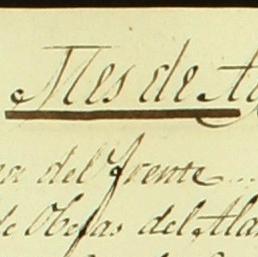 Mes de Ag
del frente
de Obras del Ala